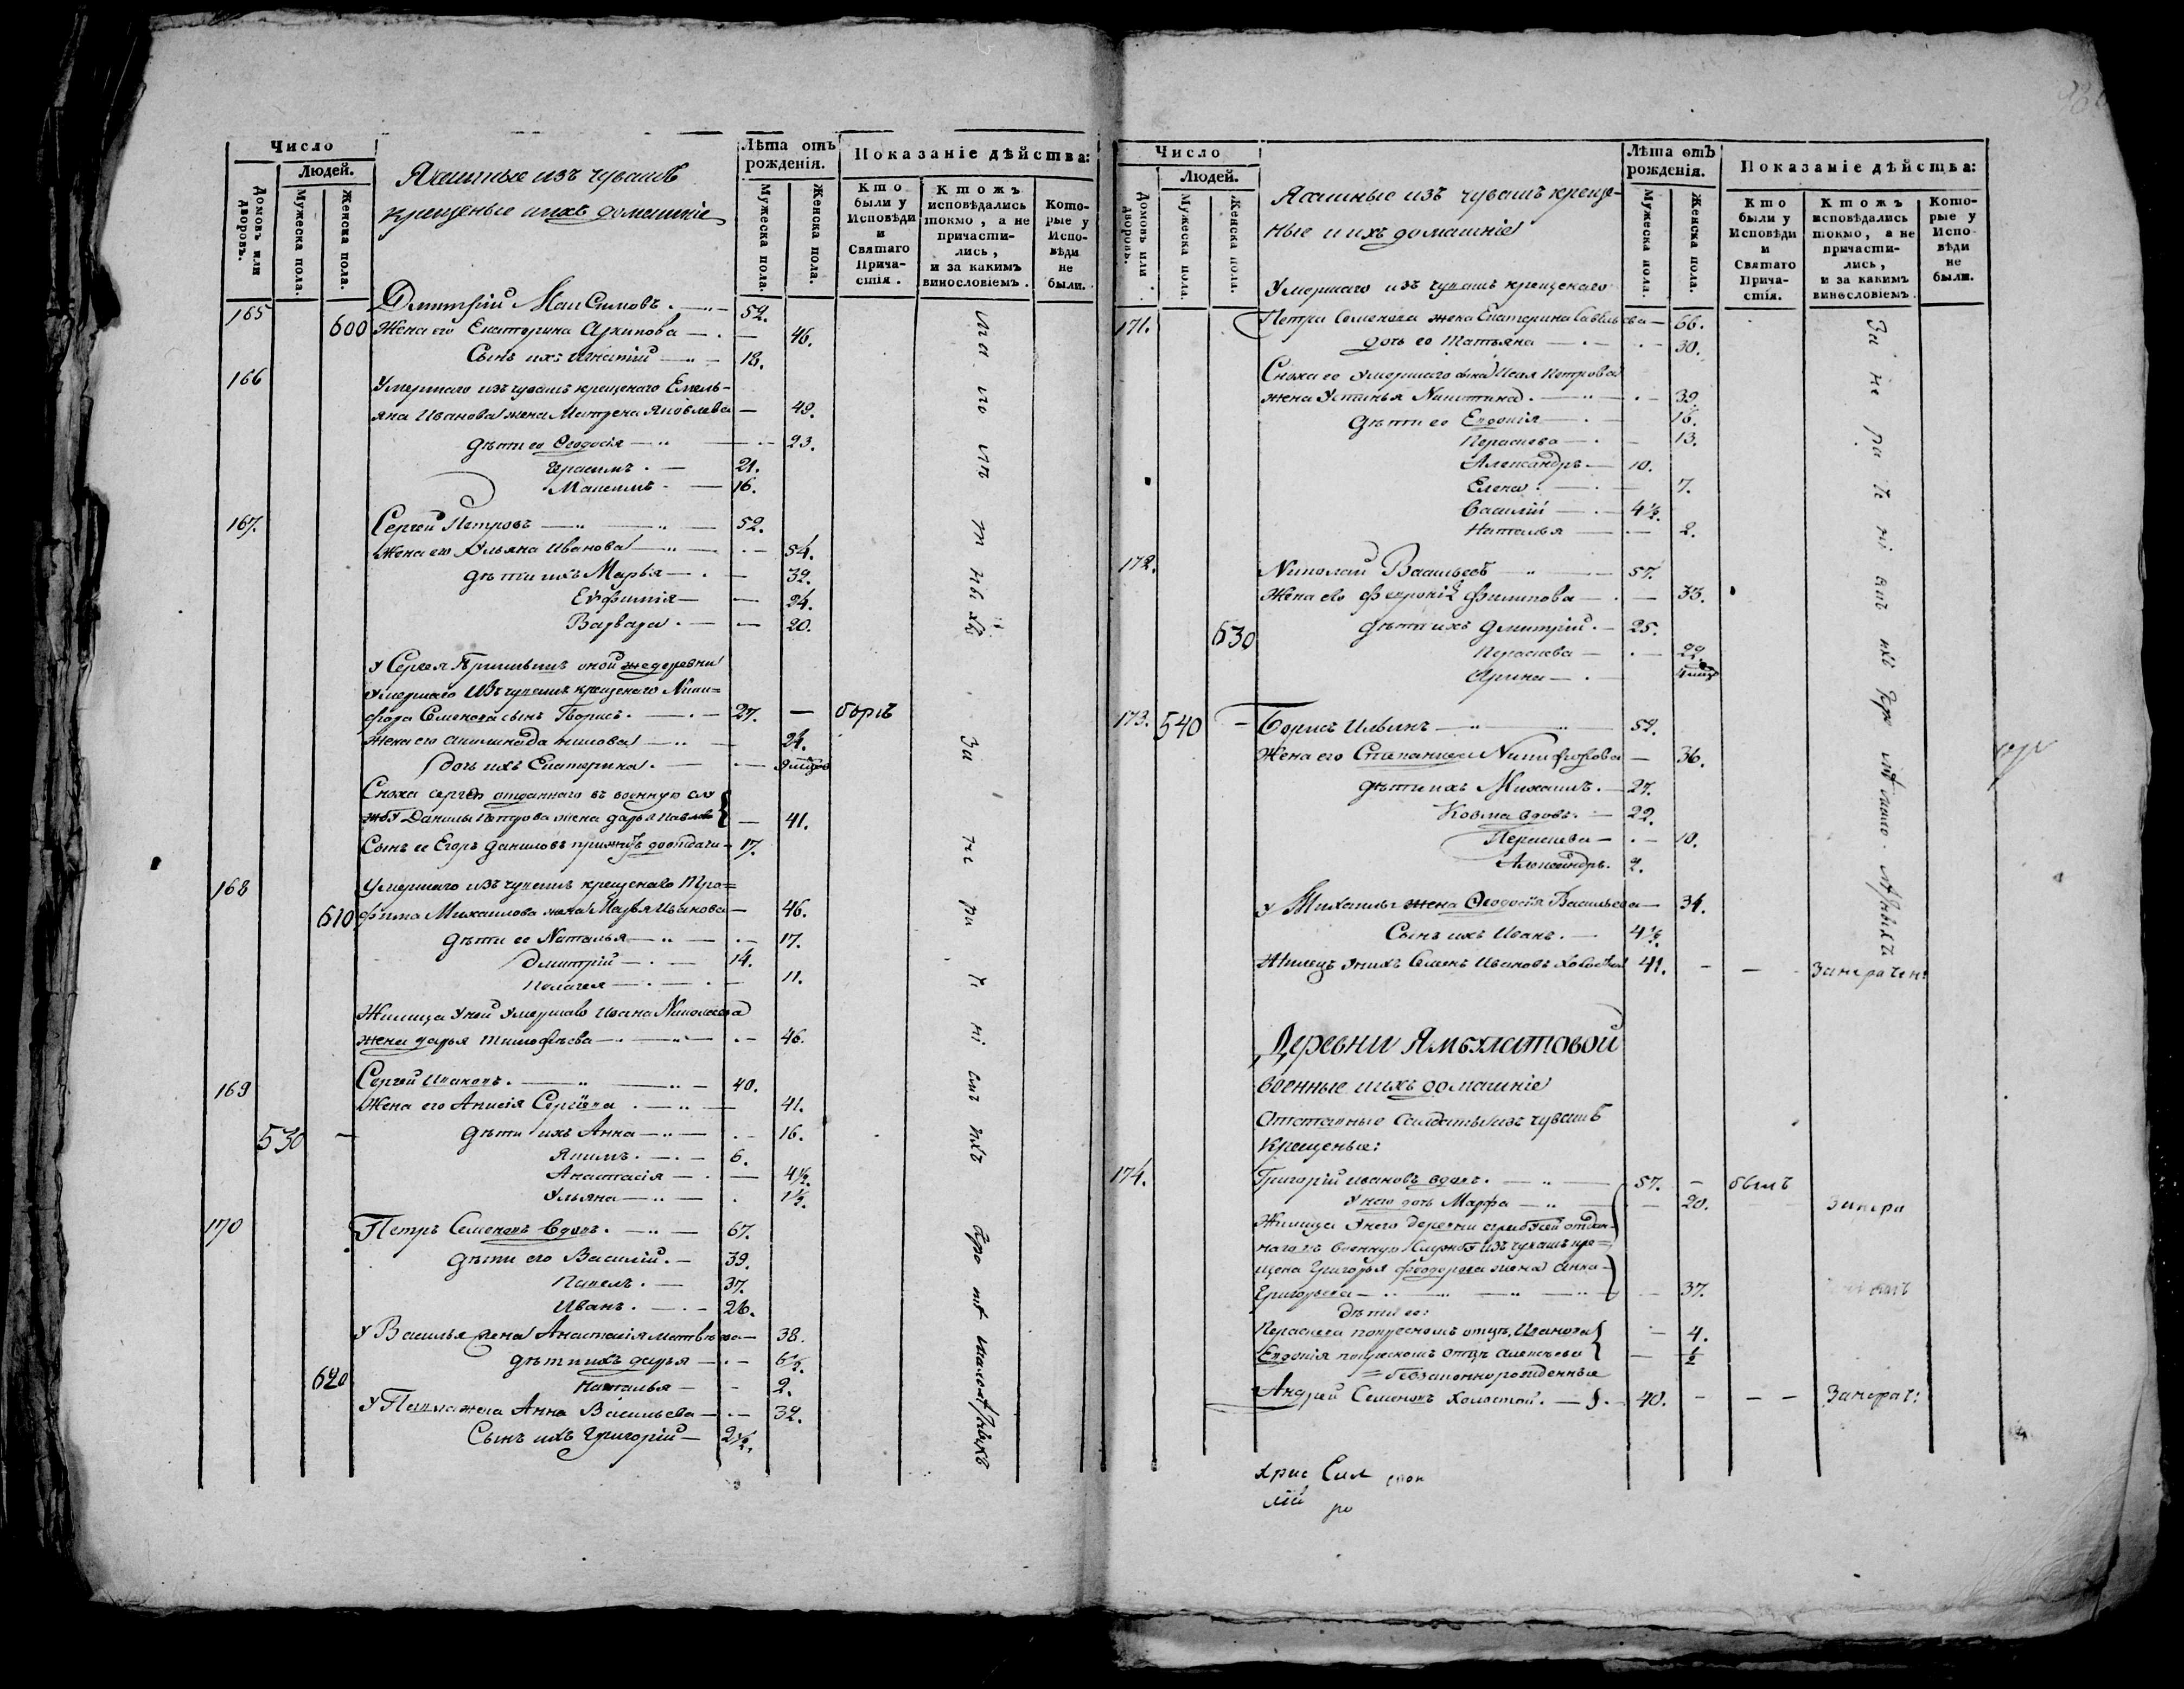 Число
Людей.
Домовъ или дворовъ.
Мужеска пола.
Женска пола.
Ясашные изъ чувашъ
крещеные и ихъ домашніе
Лѣта отъ рожденія.
Мужеска пола.
Женска пола.
Показаніе дѣйства:
Кто были у Исповѣди и Святаго Причастія.
Ктожъ исповѣдались токмо, а не причастились, и за какимъ винословіемъ.
Которые у Исповѣди не были.
165 Дмитрій Максимовъ. 52.
600 Жена его Екатерина Архипова 46.
Сынъ ихъ Игнатій 18.
166 Умершаго изъ чувашъ крещенаго Емель-
яна Иванова жена Матрена Яковлева 49.
дѣти ее Ѳеодосія 23.
Герасимъ. 21.
Максимъ 16.
167. Сергей Петровъ 52.
Жена его Ульяна Иванова 54.
дѣти ихъ Марья 32.
Евфимія 24.
Варвара. 20.
У Сергея Примышъ оной же деревни
умершаго изъ чувашъ крещенаго Ники=
фора Семенова сынъ Борисъ. 27. — бысъ
Жена его Акилина Данилова 24.
дочь ихъ Екатерина.
Сноха Сергея отданнаго въ военную слу
жбу Данилы Петрова жена Дарья Павлова 41.
Сынъ ее Егоръ Даниловъ прижитъ до отдачи 17.
168 Умершаго изъ чувашъ крещенаго Тро=
610 фима Михаилова жена Марья Иванова 46.
дѣти ее Наталья 17.
Дмитрій 14.
Пелагея 11.
Жилица у ней умершаго Ивана Николаева
жена Дарья Тимофѣева 46.
169 Сергей Ивановъ. 40.
Жена его Анисія Сергѣева 41.
530 — дѣти ихъ Анна 16.
Якимъ. 6.
Анастасія 4½.
Ульяна 1½.
170 Петръ Семеновъ вдовъ. 67.
дѣти его Василій. 39.
Павелъ. 37.
Иванъ. 26.
У Василья жена Анастасія Матвѣева 38.
дѣти ихъ Дарья 6½.
620 Наталья 2.
У Павла жена Анна Васильева 32.
Сынъ ихъ Григорій 2½.
Число
Людей.
Домовъ или дворовъ.
Мужеска пола.
Женска пола.
Ясашные изъ чувашъ креще-
ные и ихъ домашніе
Лѣта отъ рожденія.
Мужеска пола.
Женска пола.
Показаніе дѣйства:
Кто были у Исповѣди и Святаго Причастія.
Ктожъ исповѣдались токмо, а не причастились, и за какимъ винословіемъ.
Которые у Исповѣди не были.
Умершаго изъ чувашъ крещенаго
171. Петра Семенова жена Екатерина Савельева 66.
дочь ее Татьяна 30.
Сноха ее умершаго сына Исая Петрова
жена Устинья Никитина. 39.
дѣти ее Евдокія 16.
Параскева 13.
Александръ 10.
Елена. 7.
Василій 4½.
Наталья 2.
172. Николай Васильевъ 57.
Жена его Февронія Филипова 33.
630 дѣти ихъ Дмитрій. 25.
Параскева 22.
Арина
173. 540 — Борисъ Ильинъ 52.
Жена его Степанида Никифорова 36.
дѣти ихъ Михаилъ. 27.
Козма вдовъ. 22.
Параскева 10.
Александръ. 2.
У Михаилы жена Ѳеодосія Васильева 34.
Сынъ ихъ Иванъ. 4½.
Жилецъ у нихъ Семенъ Ивановъ холостой 41. — —
Деревни Ямбулатовой
военные и ихъ домашніе
Отставные солдаты изъ чувашъ
крещеные:
174. Григорій Ивановъ вдовъ. 57. — былъ
У него дочь Марфа 20.
Жилица у него деревни отдан-
наго въ военную службу изъ чувашъ кре=
щена Григорья Феодорова жена Анна
Григорьева 37.
дѣти ее:
Параскева по крестномъ отцѣ Иванова 4.
Евдокія по крестномъ отцѣ Алексѣева ½
= беззаконнорожденные
Андрей Семеновъ холостой. 40. — — —